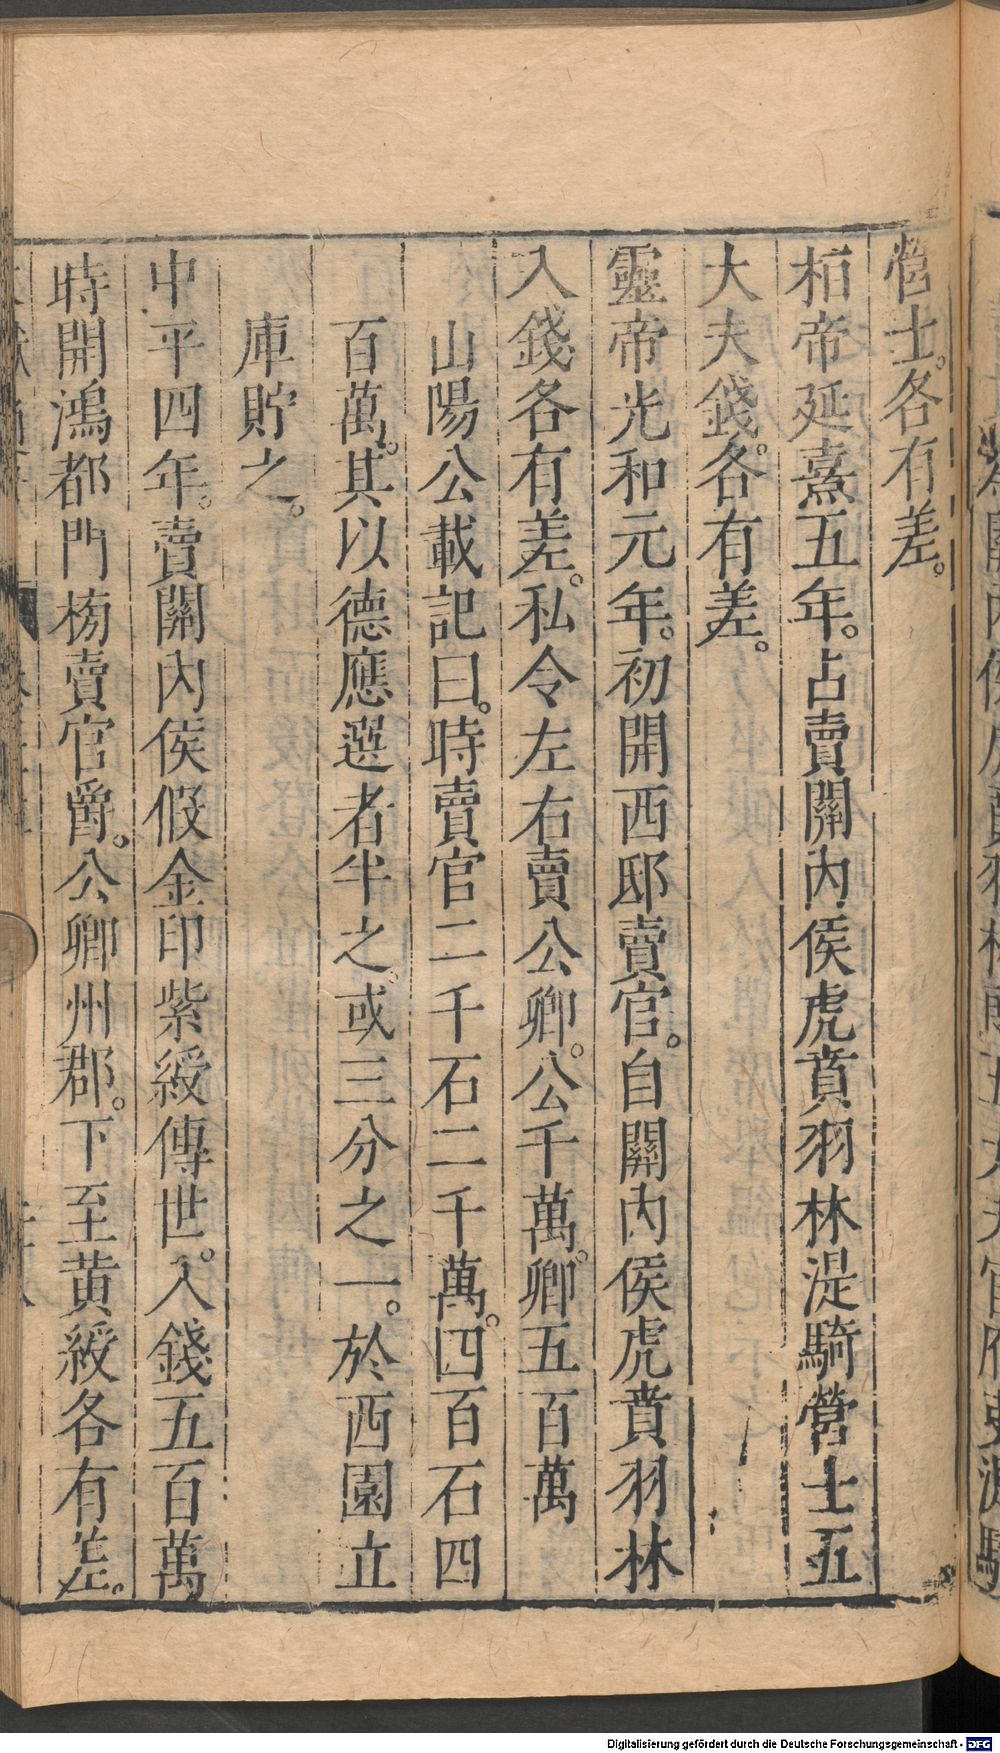 營士。各有差。
桓帝延熹五年。占賣關內侯虎賁羽林湜騎營士五
大夫錢。各有差。
靈帝光和元年。初開西邸賣官。自關內侯虎賁羽林
入錢各有差。私令左右賣公卿。公千萬。卿五百萬
山陽公載記曰。時賣官二千石二千萬。四百石四
百萬。其以德應選者半之。或三分之一。於西園立
庫貯之。
中平四年。賣關內侯假金印紫綬傳世。入錢五百萬
時開鴻都門榜賣官爵。公卿州郡。下至黃綬各有差。
Digitalisierung gefördert durch die Deutsche Forschungsgemeinschaft - DFG